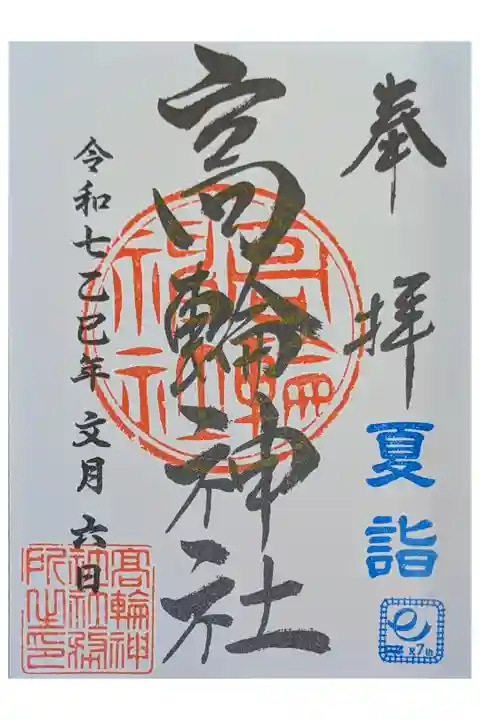 奉拝
夏詣
7th
高輪神社
高輪神社
令和七乙巳年 文月 六日
高輪神社社務所之印